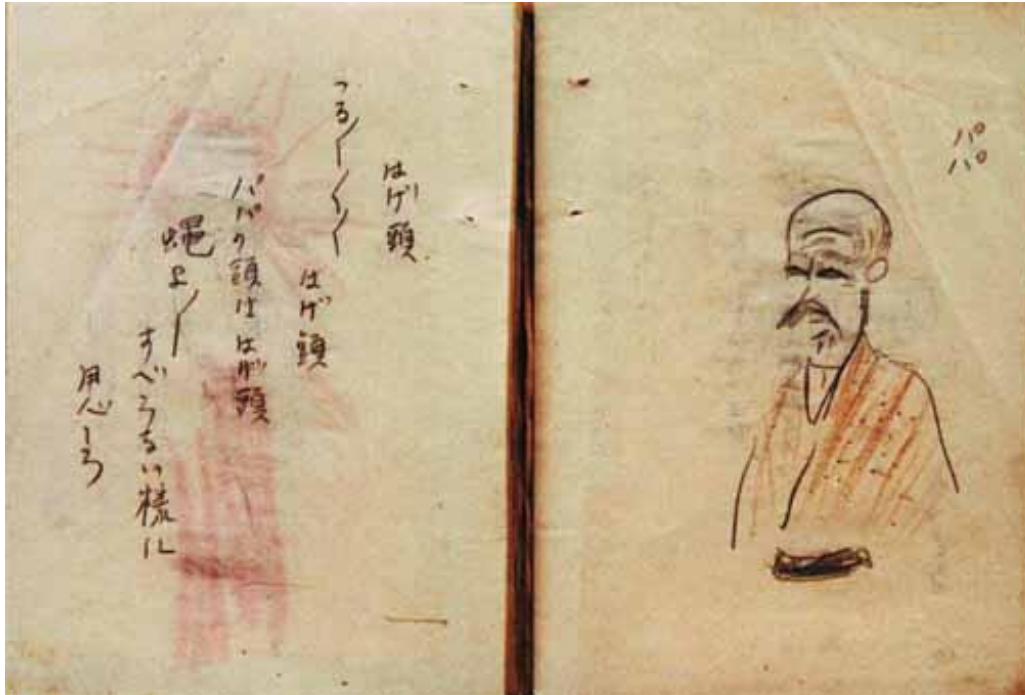 パパ
はげ頭
つるー〱ー
はげ頭
パパの頭ははげ頭
蝿よー
すべらない様に
用心しろ